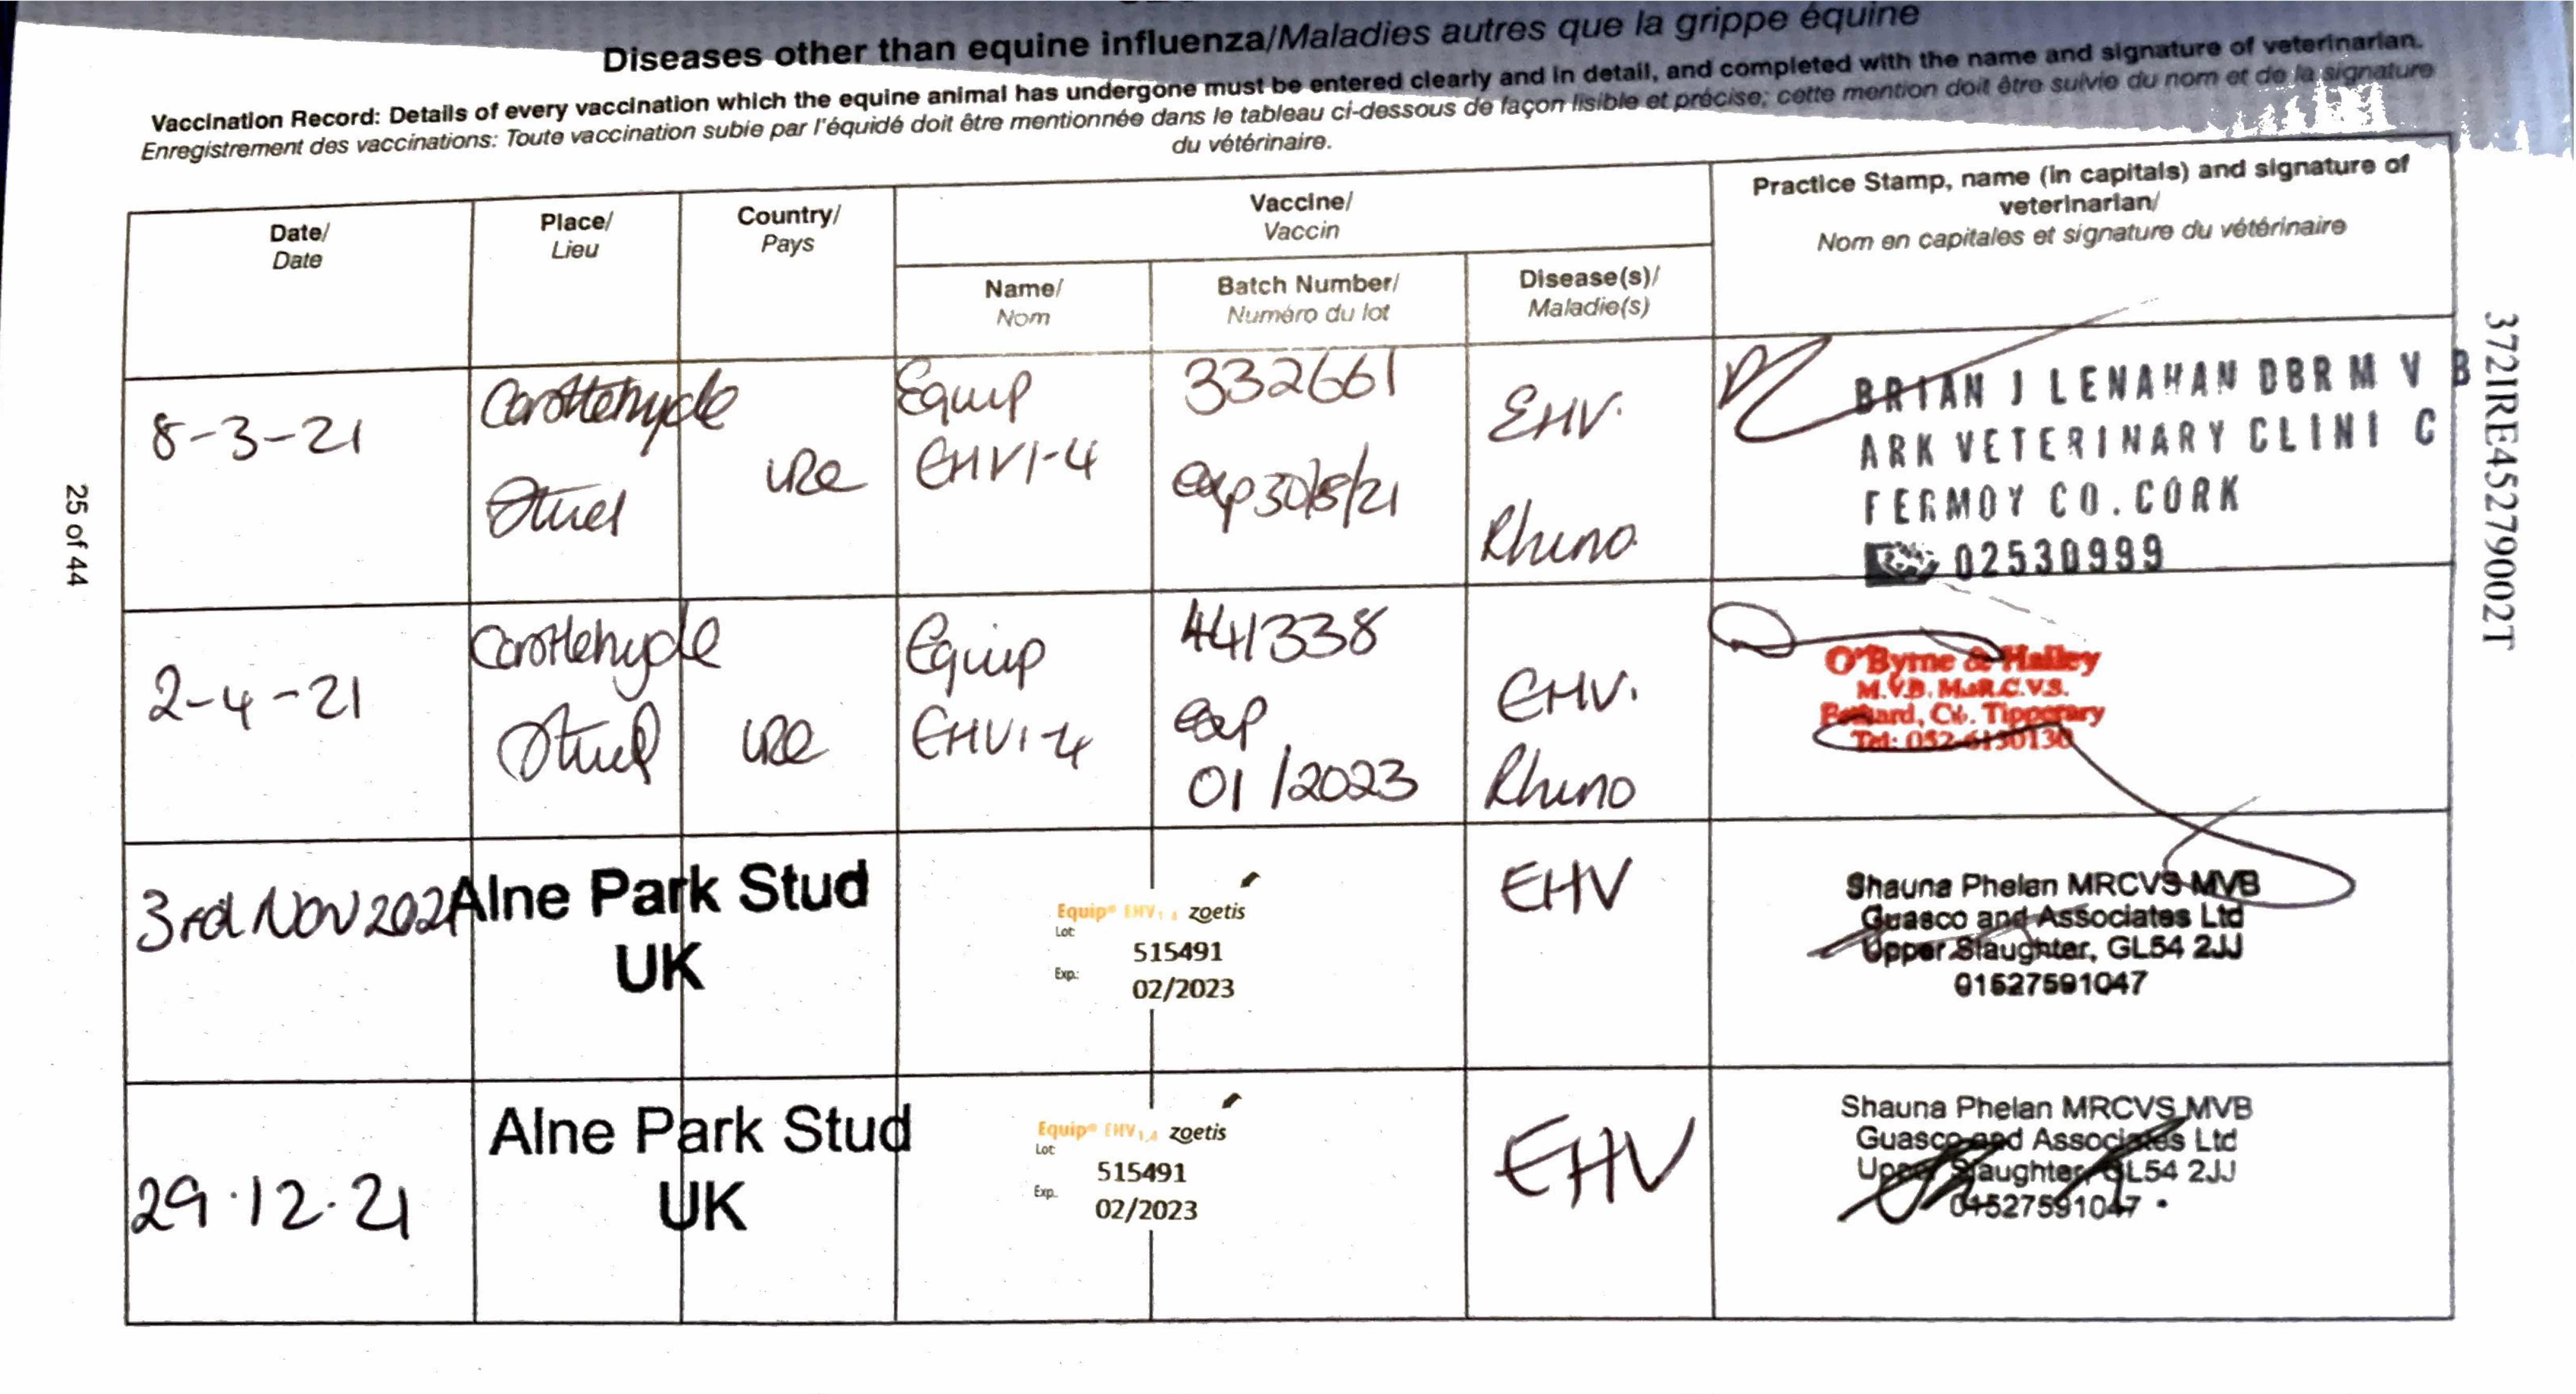 Diseases other than equine influenza/Maladies autres que la grippe équine
Vaccination Record: Details of every vaccination which the equine animal has undergone must be entered clearly and in detail, and completed with the name and signature of veterinarian.
Enregistrement des vaccinations: Toute vaccination subie par l'équidé doit être mentionnée dans le tableau ci-dessous de façon lisible et précise; cette mention doit être suivie du nom et de la signature
du vétérinaire.
Date/
Date
Place/
Lieu
Country/
Pays
Vaccine/
Vaccin
Name/
Nom
Batch Number/
Numéro du lot
Disease(s)/
Maladie(s)
Practice Stamp, name (in capitals) and signature of
veterinarian/
Nom en capitales et signature du vétérinaire
8-3-21
Castlehyde
Stud
IRE
Equip
EHV1-4
332661
exp 30/5/21
EHV.
Rhino
BRIAN J LENAHAN DBR M V B
ARK VETERINARY CLINI C
FERMOY CO.CORK
02530999
2-4-21
Castlehyde
Stud
IRE
Equip
EHV1-4
441338
exp
01/2023
EHV.
Rhino
O'Byrne & Halley
M.V.B. M.R.C.V.S.
Fethard, Co. Tipperary
Tel: 052-6130130
3rd Nov 2021
Alne Park Stud
UK
Equip® EHV1,4 zoetis
Lot:
515491
Exp.:
02/2023
EHV
Shauna Phelan MRCVS MVB
Guasco and Associates Ltd
Upper Slaughter, GL54 2JJ
01527591047
29.12.21
Alne Park Stud
UK
Equip® EHV1,4 zoetis
Lot:
515491
Exp.
02/2023
EHV
Shauna Phelan MRCVS MVB
Guasco and Associates Ltd
Upper Slaughter, GL54 2JJ
01527591047
25 of 44
372IRE45279002T